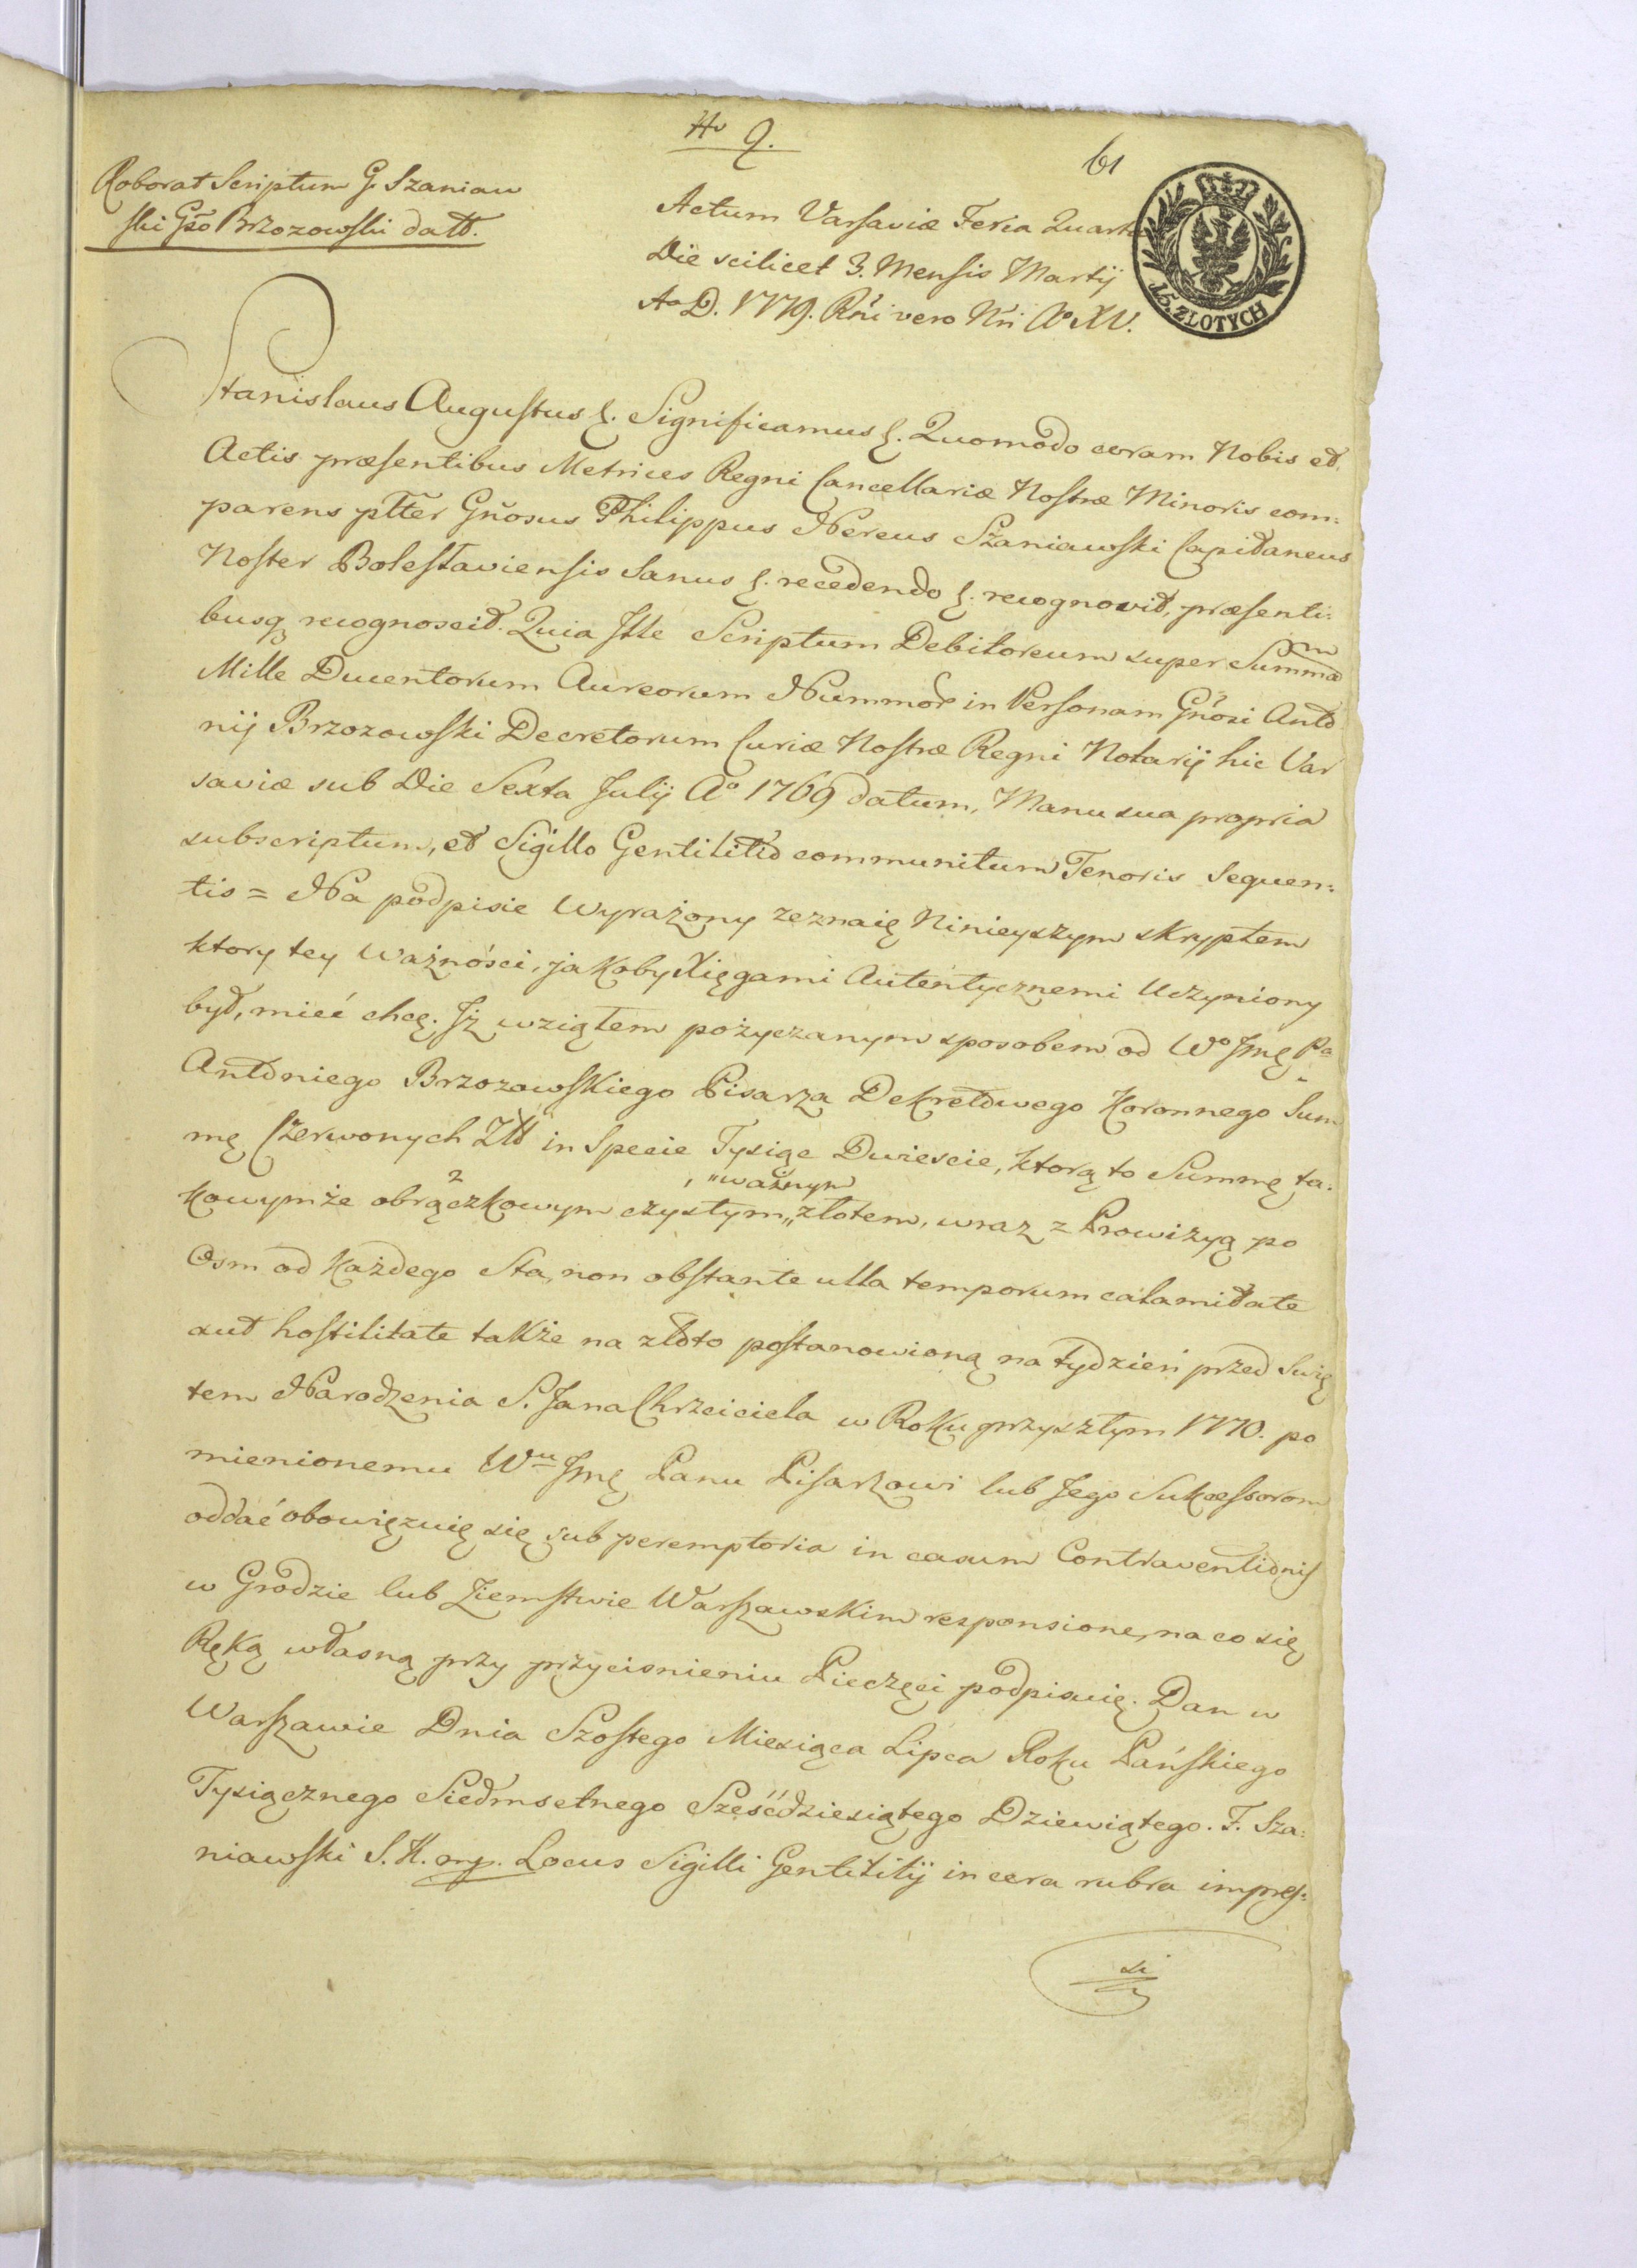 No 9.
61
Roborat Scriptum G. Szaniaw
ski Gso Brzozowski datt.
Actum Varsaviæ Feria Quarta
Die scilicet 3. Mensis Martij
Ao D. 1779. Rñi vero Nri Ao XV.
15. ZLOTYCH
Stanislaus Augustus &. Significamus &. Quomodo coram Nobis et
Actis præsentibus Metrices Regni Cancellariæ Nostræ Minoris com:
parens plter Gñosus Philippus Nereus Szaniawski Capitaneus
Noster Bolestaviensis sanus &. recedendo &. recognovit, præsenti:
busq recognoscit. Quia Ille Scriptum Debitoreum super Summam
Mille Ducentorum Aureorum Nummor in Personam Gñosi Anto
nij Brzozowski Decretorum Curiæ Nostræ Regni Notarij hic Var
saviæ sub Die Sexta Julij Ao 1769 datum, Manu sua propria
subscriptum, et Sigillo Gentilitio communitum Tenoris Sequen:
tis = Na podpisie wyrażony zeznaię Ninieyszym skryptem
ktory tey ważności, jakoby Xięgami Autentycznemi Uczyniony
był, mieć chcę. Jż wziąłem pożyczanym sposobem od Wo Jmę Pa
Antoniego Brzozowskiego Pisarza Dekretowego Koronnego Sum
mę Czerwonych Złł in Specie Tysiąc Dwieście, ktorą to Summę ta:
kowymże obrączkowym czystym „ważnym złotem, wraz z Prowizyą po
Osm od Każdego Sta, non obstante ulla temporum calamitate
aut hostilitate także na złoto postanowioną na tydzień przed Swię
tem Narodzenia S. Jana Chrzciciela w Roku przyszłym 1770. po
mienionemu Wu Jmę Panu Pisarzowi lub Jego Sukcessorom
oddać obowięzuię się sub peremptoria in casum Contraventionis
w Grodzie lub Ziemstwie Warszawskim responsione, na co się
Ręką własną przy przycisnieniu Pieczęci podpisuię. Dan w
Warszawie Dnia Szostego Miesiąca Lipca Roku Pańskiego
Tysiącznego Siedmsetnego Sześćdziesiątego Dziewiątego. F. Sza:
niawski S. K. mp. Locus Sigilli Gentilitij in cera rubra impres:
si